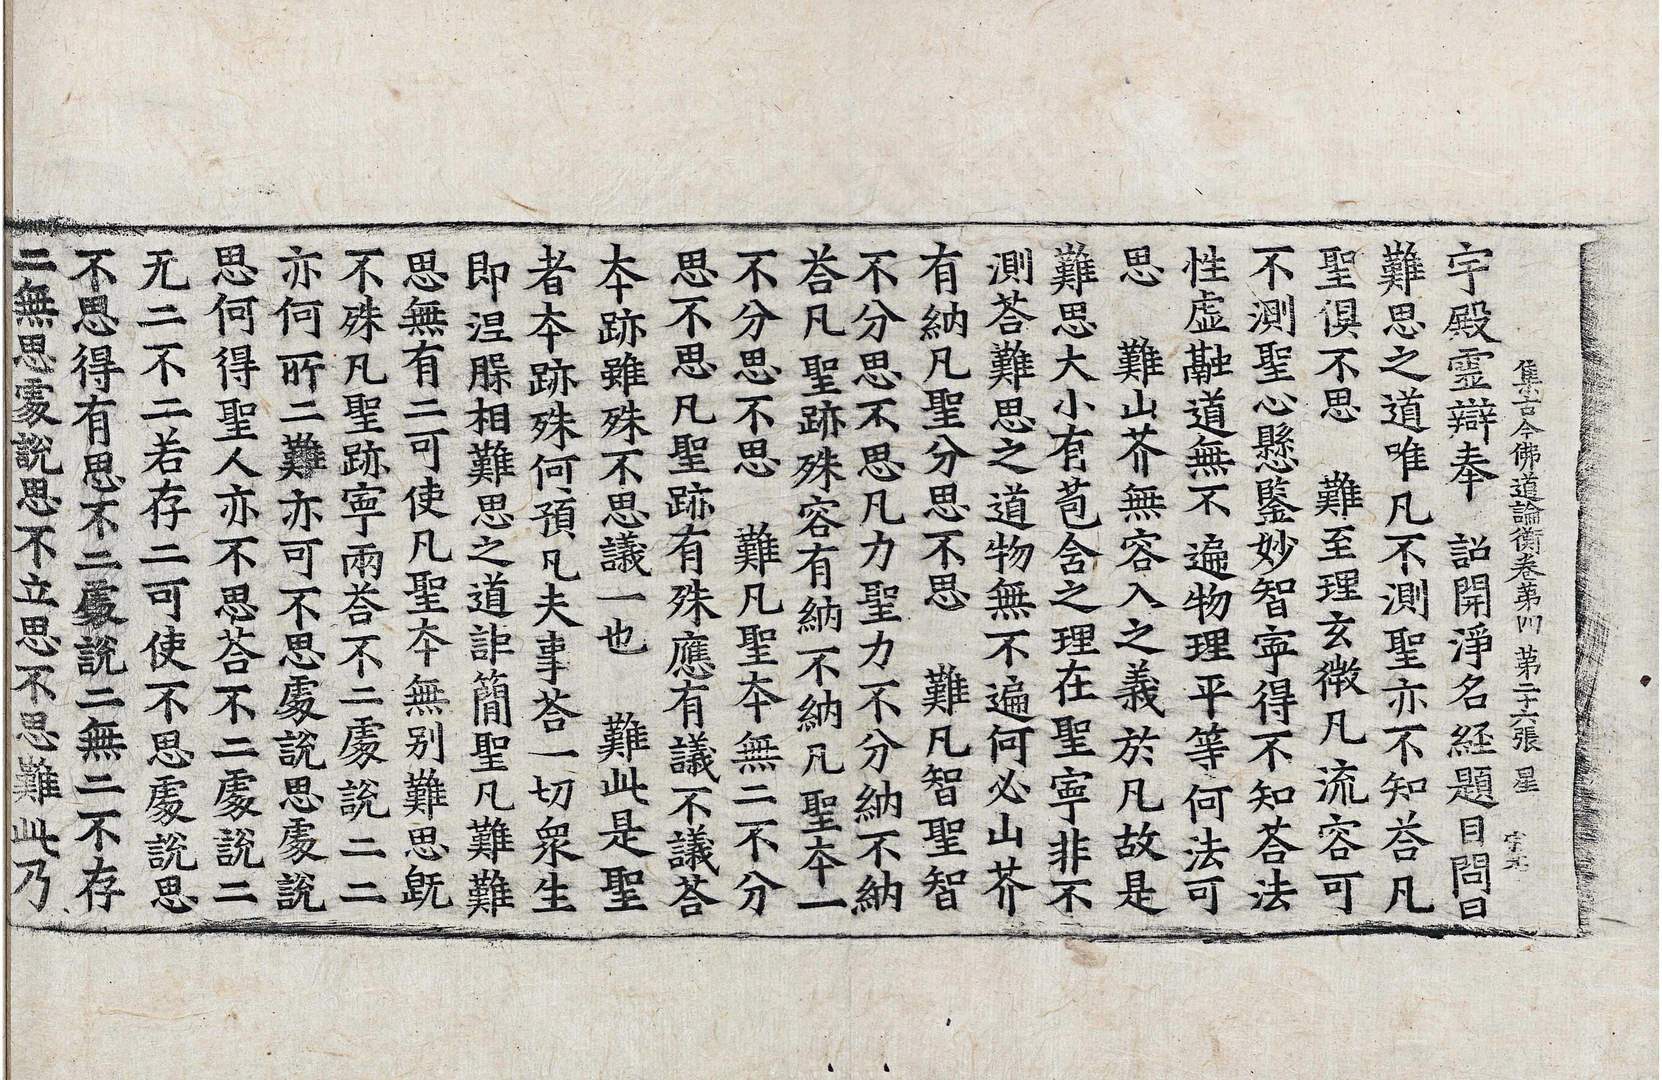 集古今佛道論衡卷第四 第二十六張 星
宇殿靈辯奉 詔開淨名経題目問曰
難思之道唯凡不測聖亦不知荅凡
聖俱不思 難至理玄微凡流容可
不測聖心懸鑒妙智寧得不知荅法
性虛融道無不遍物理平等何法可
思 難山芥無容入之義於凡故是
難思大小有苞含之理在聖寧非不
測荅難思之道物無不遍何必山芥
有納凡聖分思不思 難凡智聖智
不分思不思凡力聖力不分納不納
荅凡聖跡殊容有納不納凡聖本一
不分思不思 難凡聖本無二不分
思不思凡聖跡有殊應有議不議荅
本跡雖殊不思議一也 難此是聖
者本跡殊何預凡夫事荅一切衆生
即涅槃相難思之道詎簡聖凡難難
思無有二可使凡聖本無別難思旣
不殊凡聖跡寧兩荅不二處說二二
亦何所二難亦可不思處說思處說
思何得聖人亦不思荅不二處說二
无二不二若存二可使不思處說思
不思得有思不二處說二無二不存
二無思處說思不立思不思難此乃